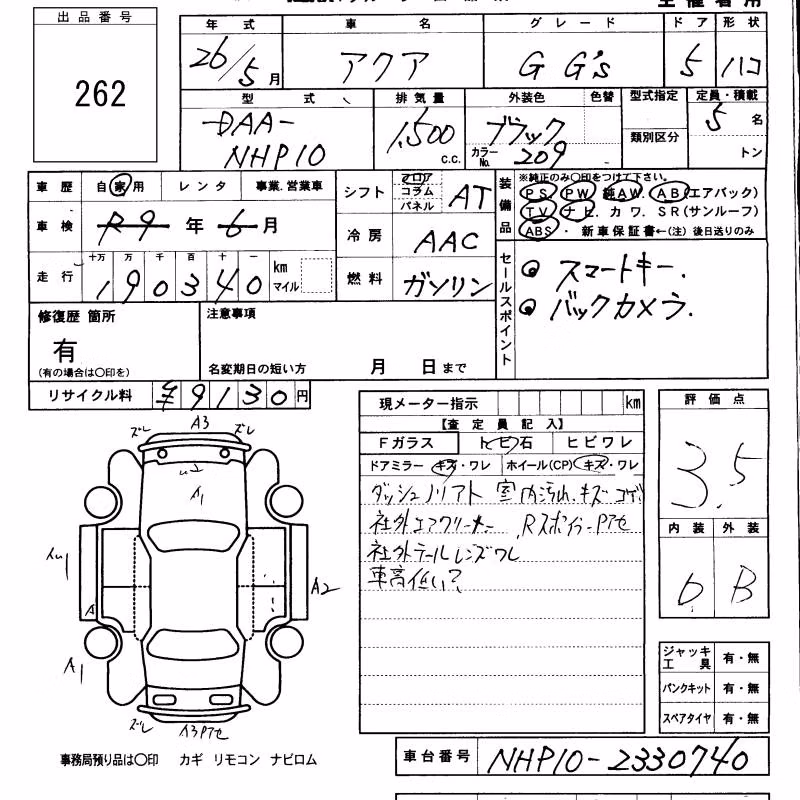 出品番号
262
年式 車名 グレード ドア 形状
26/5月 アクア G G's 5 ハコ
型式 排気量 外装色 色替 型式指定 定員・積載
-DAA- NHP10 1,500 c.c. ブラック 5名
カラーNo. 209 類別区分 トン
車歴 自家用 レンタ 事業.営業車
シフト フロア コラム パネル AT
装備品
※純正のみ〇印をつけて下さい。
PS PW 純AW. AB(エアバック)
TV ナビ. カワ. SR(サンルーフ)
ABS ・ 新車保証書←(注) 後日送りのみ
車検 R9年6月
冷房 AAC
走行 十万 万 千 百 十 一
190340 km マイル
燃料 ガソリン
セールスポイント
スマートキー.
バックカメラ.
修復歴 箇所
有
(有の場合は〇印を)
注意事項
名変期日の短い方 月 日まで
リサイクル料 ¥9130円
現メーター指示 km
【査定員記入】
Fガラス トビ石 ヒビワレ
ドアミラー キズ・ワレ ホイール(CP) キズ・ワレ
ダッシュノリアト 室内汚れ.キズ コゲ
社外エアクリーナー Rスポイラーアセ
社外テールレンズワレ
車高低い?
評価点
3.5
内装 外装
B
A3
ズレ ズレ
A1
A2
A
A1
ズレ
ジャッキ工具 有・無
パンクキット 有・無
スペアタイヤ 有・無
事務局預り品は〇印 カギ リモコン ナビロム
車台番号 NHP10-2330740